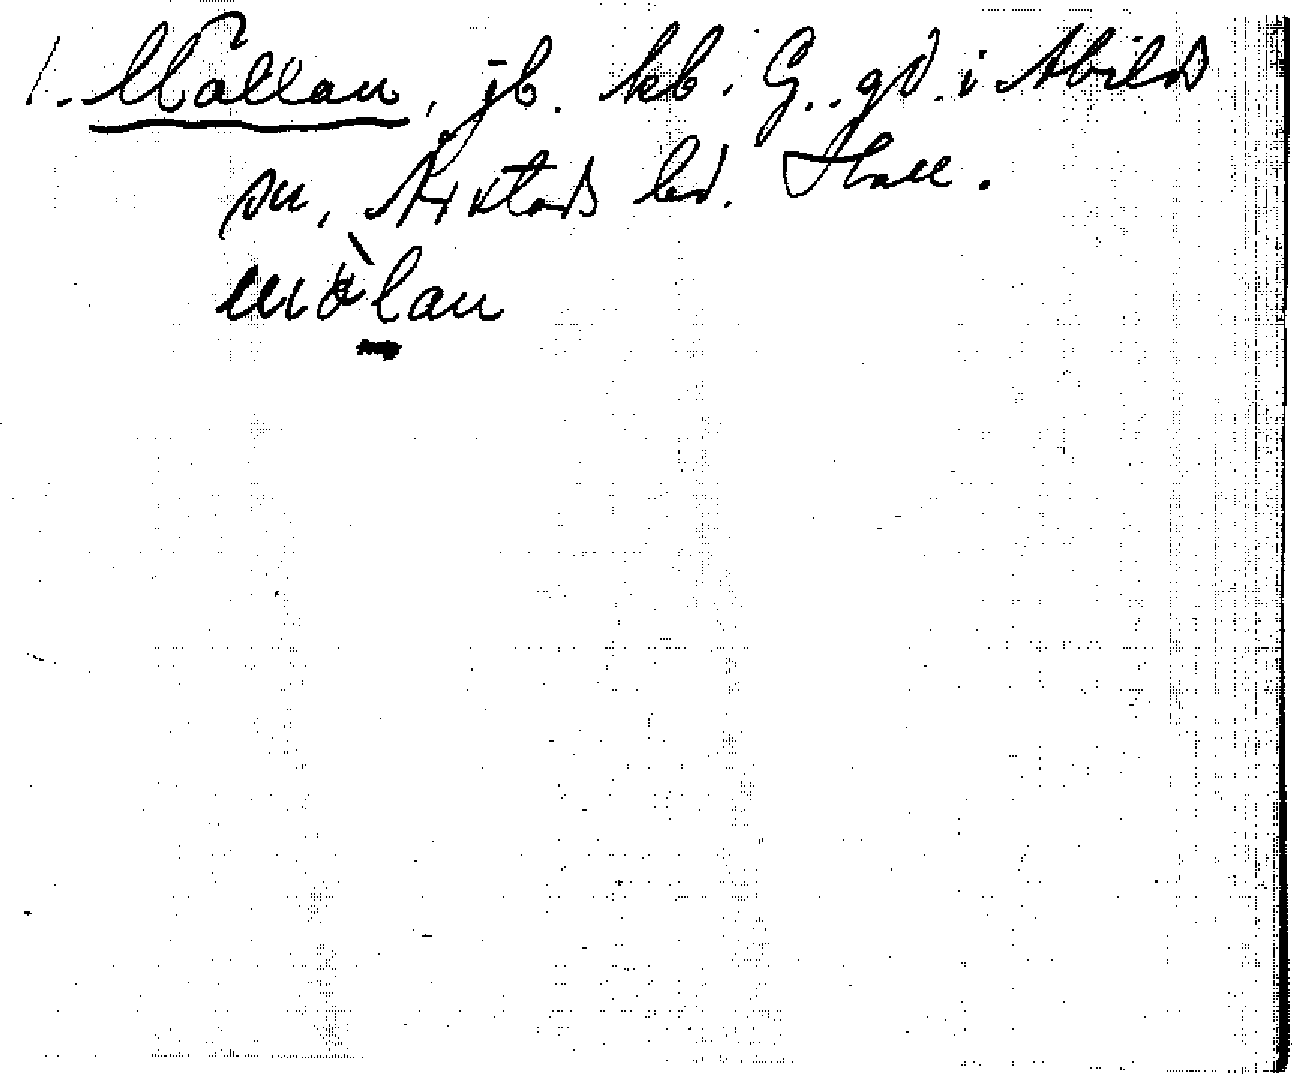 1. Mållan, jb. kb. G., gd. i Abilds
sn, Årstads hd. Hall.
mòlan